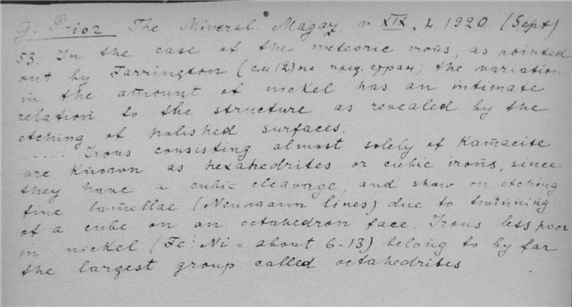 G. Prior The Mineral. Magaz. v XIX, L 1920 (Sept)
53. In the case of the meteoric irons, as pointed
out by Farrington (см 12) на пред. стран; the variation
in the amount of nickel has an intimate
relation to the structure as revealed by the
etching of polished surfaces.
..... Irons consisting almost solely of Kamacite
are known as hexahedrites or cubic irons, since
they have a cubic cleavage, and show on etching
fine lamellae (Neumann lines) due to twinning
of a cube on an octahedron face. Irons less poor
in nickel (Fe:Ni = about 6-13) belong to by far
the largest group called octahedrites